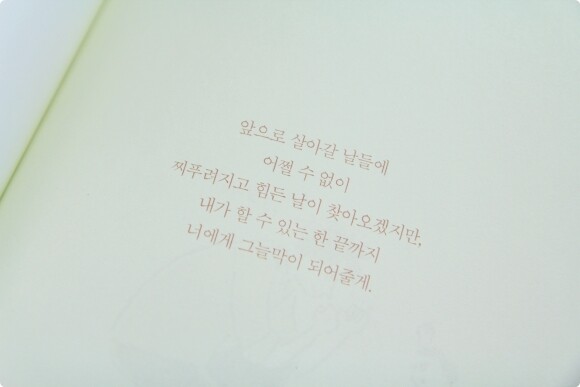 앞으로 살아갈 날들에
어쩔 수 없이
찌푸려지고 힘든 날이 찾아오겠지만,
내가 할 수 있는 한 끝까지
너에게 그늘막이 되어줄게.